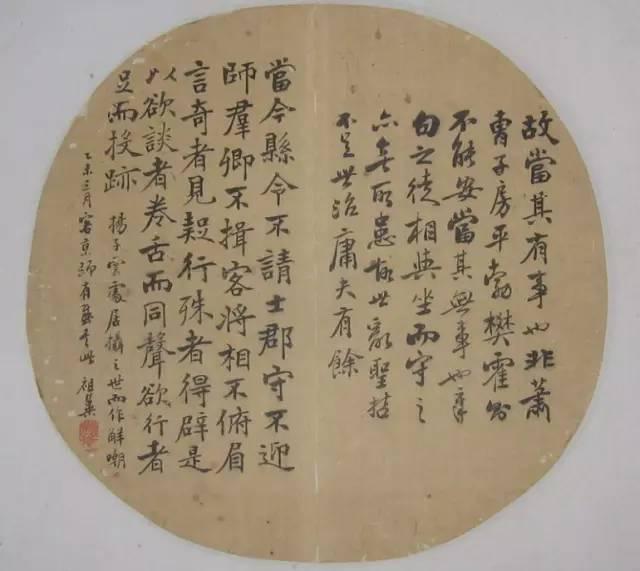 故當其有事也非蕭
曹子房平勃樊霍則
不能安當其無事也章
句之徒相與坐而守之
亦無所患故世亂聖哲
不足世治庸夫有餘
當今縣令不請士郡守不迎
師羣卿不揖客將相不俯眉
言奇者見疑行殊者得辟是
以欲談者卷舌而同聲欲行者
足而投跡
揚子雲處居攝之世而作解嘲
乙未三月客京師有感書此 祖